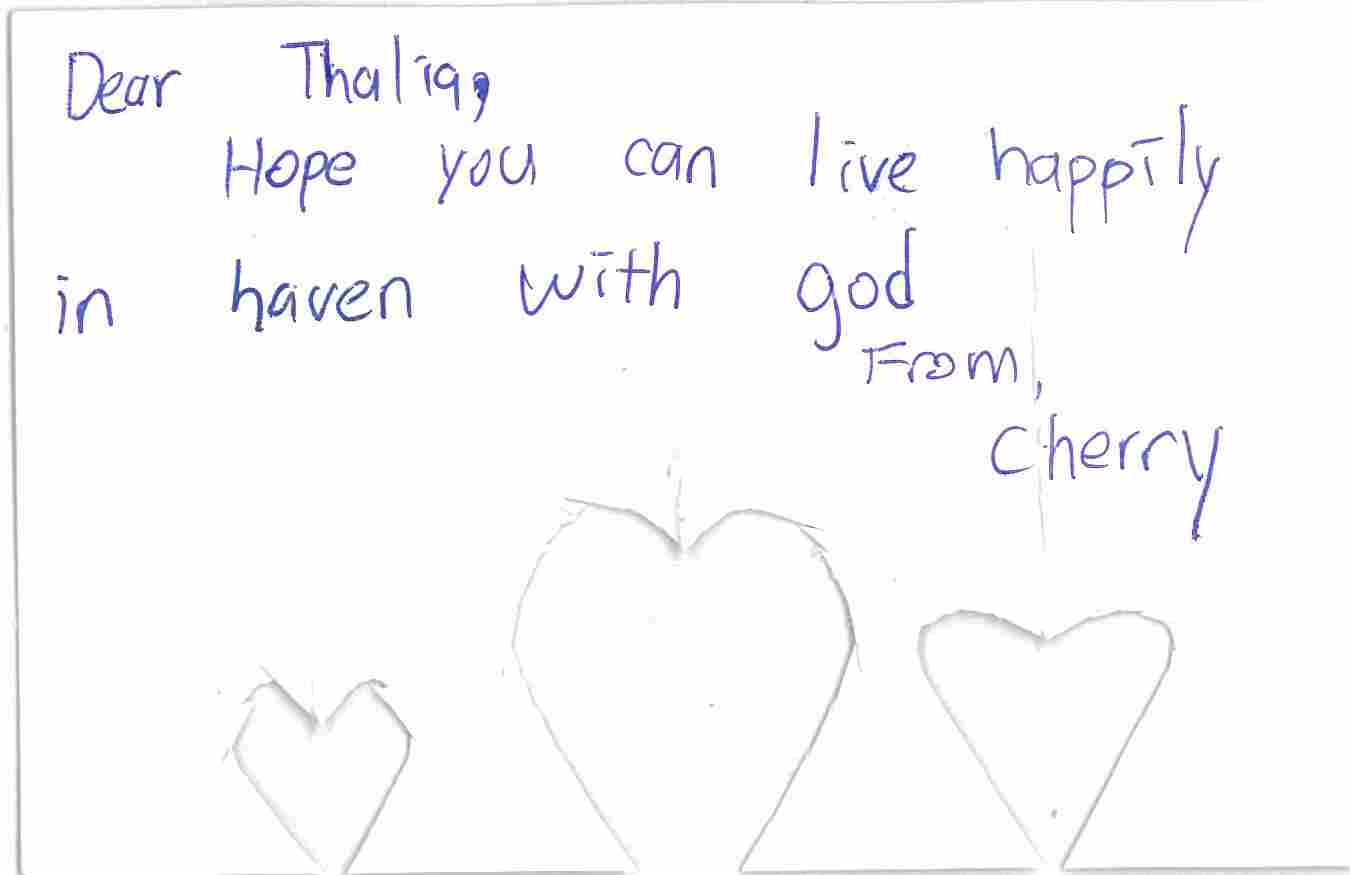 Dear Thalia,
Hope you can live happily
in haven with god
From,
Cherry